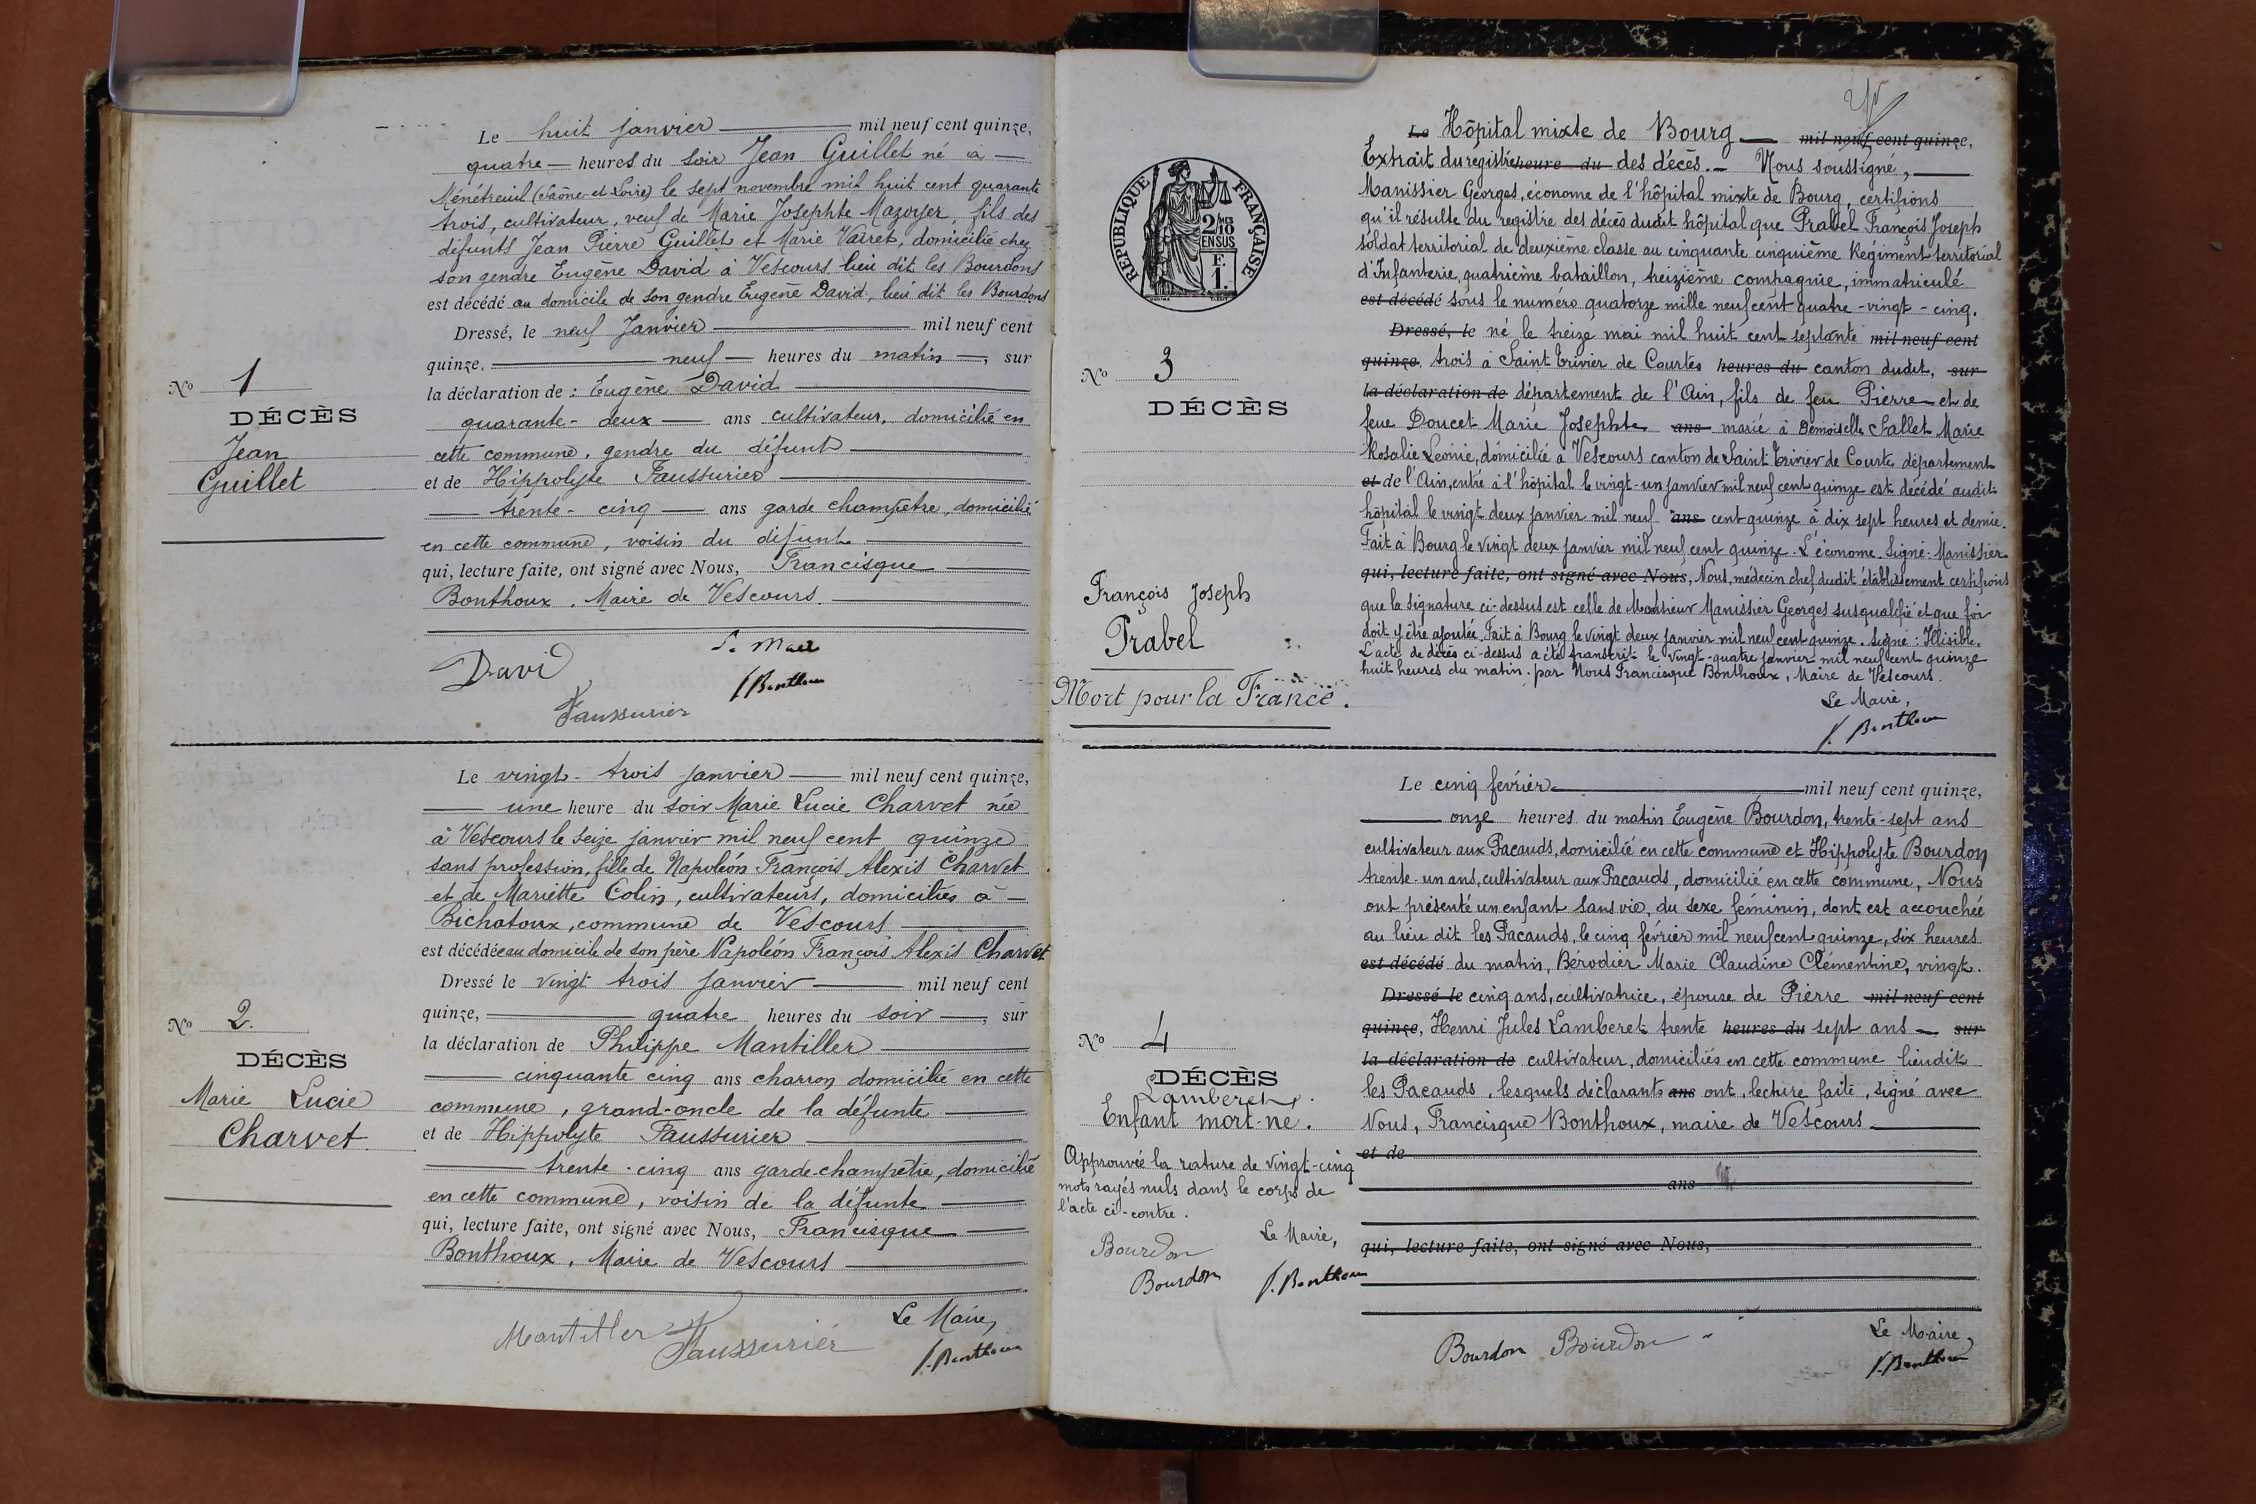 Le huit janvier mil neuf cent quinze,
quatre heures du soir Jean Guillet né à
Ménétreuil (Saône et Loire) le sept novembre mil huit cent quarante
trois, cultivateur, veuf de Marie Josephte Mazoyer, fils des
défunts Jean Pierre Guillet et Marie Vairet, domicilié chez
son gendre Eugène David à Vescours lieu dit les Bourdons
est décédé au domicile de son gendre Eugène David, lieu dit les Bourdons
Dressé, le neuf Janvier mil neuf cent
quinze, neuf heures du matin, sur
la déclaration de : Eugène David
quarante-deux ans cultivateur, domicilié en
cette commune, gendre du défunt
et de Hippolyte Faussurier
trente-cinq ans garde champêtre, domicilié
en cette commune, voisin du défunt
qui, lecture faite, ont signé avec Nous, Francisque
Bonthoux, Maire de Vescours.
No 1
DÉCÈS
Jean
Guillet
Davi
Faussurier
F. Bonthoux
Le vingt-trois janvier mil neuf cent quinze,
une heure du soir Marie Lucie Charvet née
à Vescours le seize janvier mil neuf cent quinze
sans profession, fille de Napoléon François Alexis Charvet
et de Mariette Colin, cultivateurs, domiciliés à
Bichatoux, commune de Vescours
est décédée au domicile de son père Napoléon François Alexis Charvet
Dressé le vingt trois janvier mil neuf cent
quinze, quatre heures du soir, sur
la déclaration de Philippe Mantiller
cinquante cinq ans charron domicilié en cette
commune, grand-oncle de la défunte
et de Hippolyte Faussurier
trente-cinq ans garde-champêtre, domicilié
en cette commune, voisin de la défunte
qui, lecture faite, ont signé avec Nous, Francisque
Bonthoux, Maire de Vescours
No 2.
DÉCÈS
Marie Lucie
Charvet
Mantiller Faussurier
Le Maire,
F. Bonthoux
RÉPUBLIQUE FRANÇAISE
2/10 EN SUS
F.
1.
Le Hôpital mixte de Bourg mil neuf cent quinze,
Extrait du registre heure du des décès. - Nous soussigné,
Manissier Georges, économe de l'hôpital mixte de Bourg, certifions
qu'il résulte du registre des décès dudit hôpital que Prabel François Joseph
soldat territorial de deuxième classe au cinquante cinquième Régiment territorial
d'Infanterie, quatrième bataillon, treizième compagnie, immatriculé
est décédé sous le numéro quatorze mille neuf cent quatre-vingt-cinq.
Dressé, le né le treize mai mil huit cent septante mil neuf cent
quinze, trois à Saint Trivier de Courtes heures du canton dudit, sur
la déclaration de département de l'Ain, fils de feu Pierre et de
feue Doucet Marie Josephte ans marié à Demoiselle Sallet Marie
Rosalie Léonie, domicilié à Vescours canton de Saint Trivier de Courtes département
et de de l'Ain, entré à l'hôpital le vingt-un janvier mil neuf cent quinze est décédé audit
hôpital le vingt deux janvier mil neuf ans cent quinze à dix sept heures et demie.
Fait à Bourg le vingt deux janvier mil neuf cent quinze. L'économe. Signé: Manissier
qui, lecture faite, ont signé avec Nous, Nous, médecin chef dudit établissement certifions
que la signature ci-dessus est celle de Monsieur Manissier Georges susqualifié et que foi
doit y être ajoutée. Fait à Bourg le vingt deux janvier mil neuf cent quinze. Signé : Illisible.
L'acte de décès ci-dessus a été transcrit le vingt-quatre janvier mil neuf cent quinze
huit heures du matin. par Nous Francisque Bonthoux, Maire de Vescours.
Le Maire,
F. Bonthoux
No 3
DÉCÈS
François Joseph
Prabel
Mort pour la France.
Le cinq février mil neuf cent quinze,
onze heures du matin Eugène Bourdon, trente-sept ans
cultivateur aux Pacauds, domicilié en cette commune et Hippolyte Bourdon
trente-un ans, cultivateur aux Pacauds, domicilié en cette commune, Nous
ont présenté un enfant sans vie, du sexe féminin, dont est accouchée
au lieu dit les Pacauds, le cinq février mil neuf cent quinze, six heures
est décédé du matin, Bérodier Marie Claudine Clémentine, vingt-
Dressé le cinq ans, cultivatrice, épouse de Pierre mil neuf cent
quinze, Henri Jules Lamberet trente heures du sept ans sur
la déclaration de cultivateur, domiciliés en cette commune lieudit
les Pacauds, lesquels déclarants ans ont, lecture faite, signé avec
Nous, Francisque Bonthoux, maire de Vescours
et de
ans
qui, lecture faite, ont signé avec Nous,
No 4
DÉCÈS
Lamberet
Enfant mort-né.
Approuvée la rature de vingt-cinq
mots rayés nuls dans le corps de
l'acte ci-contre.
Le Maire,
Bourdon
Bourdon F. Bonthoux
Bourdon Bourdon
Le Maire,
F. Bonthoux